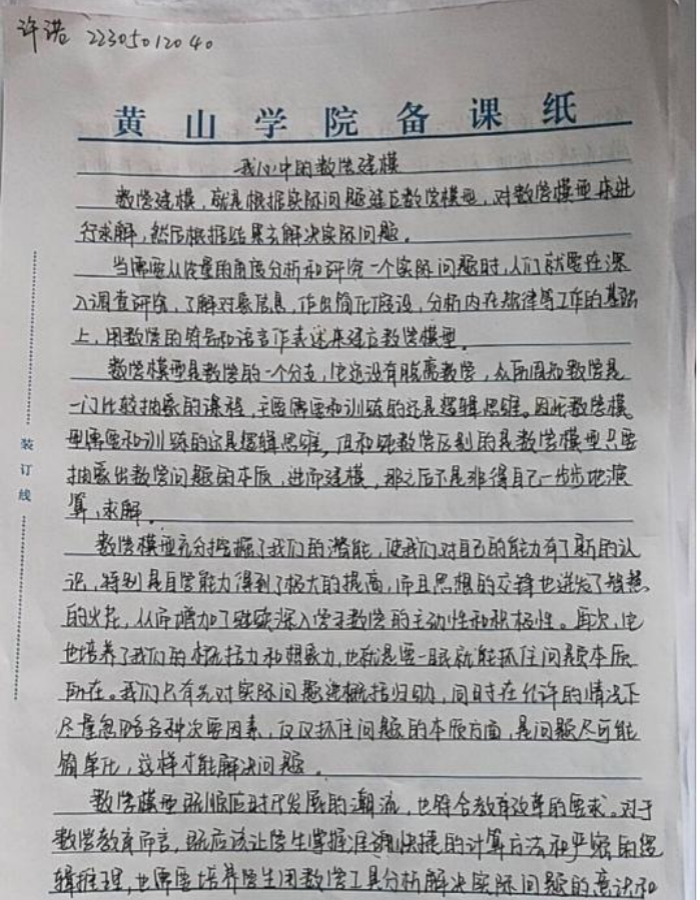 许诺 22305012040
黄山学院备课纸
我心中的数学建模
数学建模，就是根据实际问题建立数学模型，对数学模型来进
行求解，然后根据结果去解决实际问题。
当需要从定量的角度分析和研究一个实际问题时，人们就要在深
入调查研究，了解对象信息，作出简化假设，分析内在规律等工作的基础
上，用数学的符号和语言作表述来建立数学模型。
数学模型是数学的一个分支，它还没有脱离数学，众所周知数学是
一门比较抽象的课程，主要需要和训练的还是逻辑思维。因此数学模
型需要和训练的还是逻辑思维，但和纯数学区别的是数学模型只要
抽象出数学问题的本质，进而建模，那之后不是非得自己一步步地演
算，求解。
数学模型充分挖掘了我们的潜能，使我们对自己的能力有了新的认
识，特别是自学能力得到了极大的提高，而且思想的交锋也迸发了智慧
的火花，从而增加了继续深入学习数学的主动性和积极性。再次，它
也培养了我们的概括力和想象力，也就是要一眼就能抓住问题本质
所在。我们只有先对实际问题进行概括归纳，同时在允许的情况下
尽量忽略各种次要因素，仅仅抓住问题的本质方面，是问题尽可能
简单化，这样才能解决问题。
数学模型既顺应时代发展的潮流，也符合教育改革的要求。对于
数学教育而言，既应该让学生掌握准确快捷的计算方法和严密的逻
辑推理，也需要培养学生用数学工具分析解决实际问题的意识和
装订线